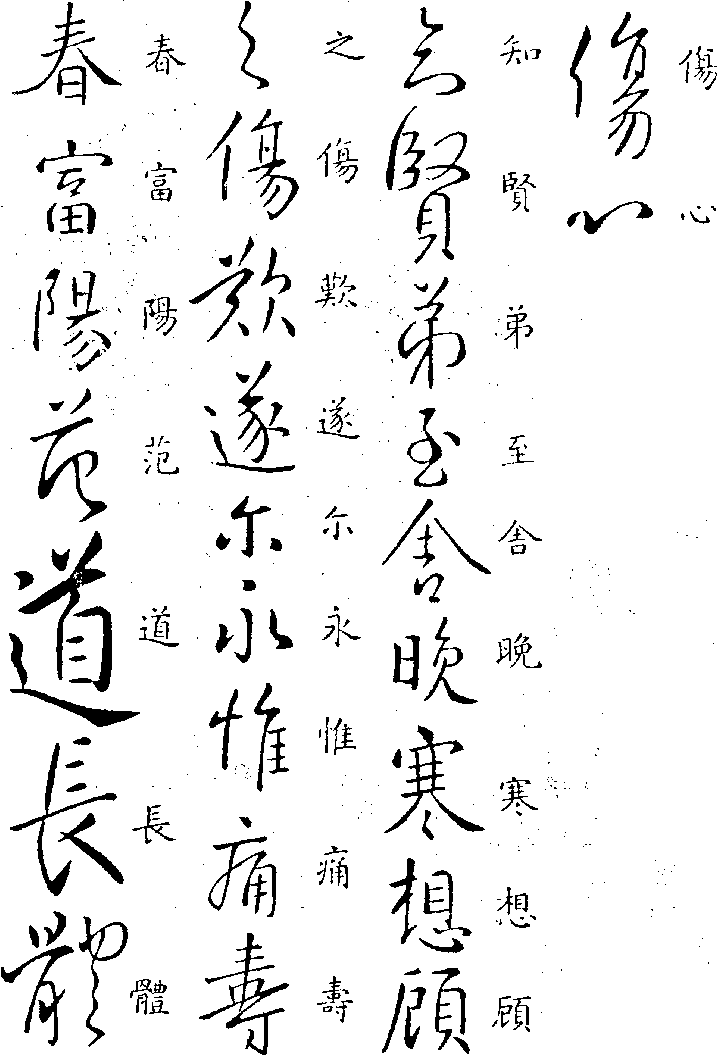 傷心
傷心
知賢弟至舍晚寒想顧
知賢弟至舍晚寒想顧
之傷歎遂尓永惟痛壽
之傷歎遂尓永惟痛壽
春富陽范道長體
春富陽范道長體